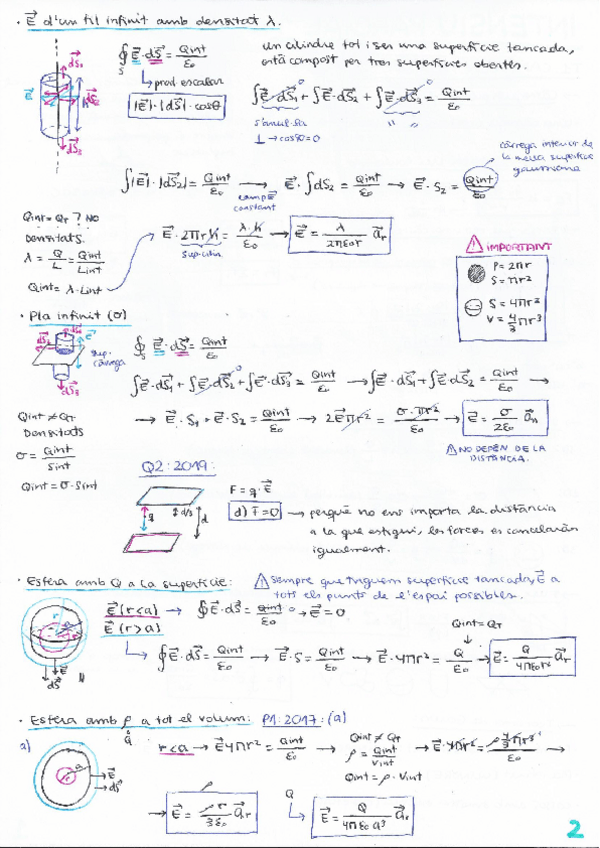 · E⃗ d'un fil infinit amb densitat λ.
∮ₛ E⃗ · dS⃗ = Qint/ε₀
↳ prod. escalar
|E⃗| · |dS⃗| · cosθ
un cilindre tot i ser una superfície tancada,
està compost per tres superfícies obertes.
∫E⃗·dS⃗₁ + ∫E⃗·dS⃗₂ + ∫E⃗·dS⃗₃ = Qint/ε₀
s'anul·la " "
⊥ → cos90 = 0
càrrega interior de
la meva superfície
gaussiana
∫|E⃗|·|dS⃗₂| = Qint/ε₀ → camp E⃗ constant E⃗·∫dS₂ = Qint/ε₀ → E⃗·S₂ = Qint/ε₀
Qint = QT? NO
Densitats.
λ = Q/L = Qint/Lint
Qint = λ·Lint
E⃗·2πrh = λ·h/ε₀ → E⃗ = λ/2πε₀r a⃗r
Sup. cilin
⚠ IMPORTANT
P = 2πr
S = πr²
S = 4πr²
V = 4/3 πr³
· Pla infinit (σ)
dS⃗₁
E⃗
sup. càrrega
dS⃗₃
∮ₛ E⃗ · dS⃗ = Qint/ε₀
∫E⃗·dS⃗₁ + ∫E⃗·dS⃗₂ + ∫E⃗·dS⃗₃ = Qint/ε₀ → ∫E⃗·dS⃗₁ + ∫E⃗·dS⃗₂ = Qint/ε₀ →
Qint ≠ QT
Densitats
σ = Qint/Sint
Qint = σ·Sint
→ E⃗·S₁ + E⃗·S₂ = Qint/ε₀ → 2E⃗πr² = σ·πr²/ε₀ → E⃗ = σ/2ε₀ a⃗n
⚠ NO DEPÈN DE LA
DISTÀNCIA.
Q2: 2019:
q d/3 d
F = q·E⃗
d) F⃗ = 0 → perquè no ens importa la distància
a la que estigui, les forces es cancelaràn
igualment.
· Esfera amb Q a la superfície:
⚠ Sempre que tinguem superfície tancada, E⃗ a
tots els punts de l'espai possibles.
E⃗ (r<a) → ∮E⃗·dS⃗ = Qint/ε₀ → E⃗ = 0
E⃗ (r>a)
Qint = QT
↳ ∮E⃗·dS⃗ = Qint/ε₀ → E⃗·S = Qint/ε₀ → E⃗·4πr² = Q/ε₀ → E⃗ = Q/4πε₀r² a⃗r
E⃗
dS⃗
· Esfera amb ρ a tot el volum: P1: 2017: (a)
Q
a)
E⃗
dS⃗
r<a → E⃗4πr² = Qint/ε₀ → Qint ≠ QT
ρ = Qint/Vint
Qint = ρ·Vint
→ E⃗·4πr² = ρ 4/3 πr³/ε₀ →
ρ
→ E⃗ = ρ r/3ε₀ a⃗r
Q
↳ E⃗ = Q/4πε₀a³ a⃗r
2